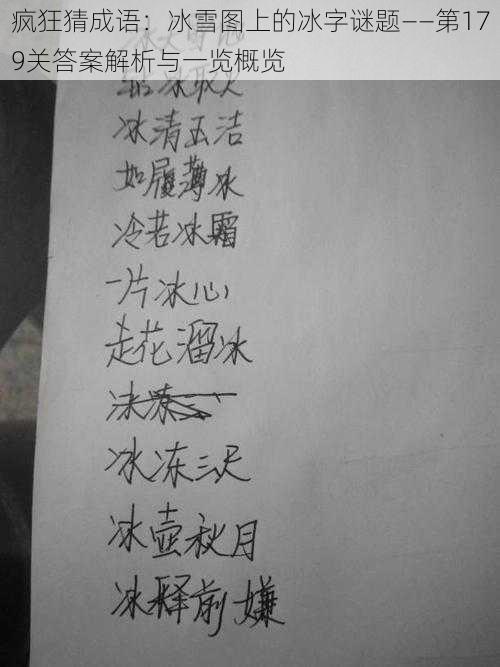 疯狂猜成语：冰雪图上的冰字谜题——第17
9关答案解析与一览概览
冰清玉洁
如履薄冰
冷若冰霜
一片冰心
走花溜冰
冰冻三尺
冰壶秋月
冰释前嫌